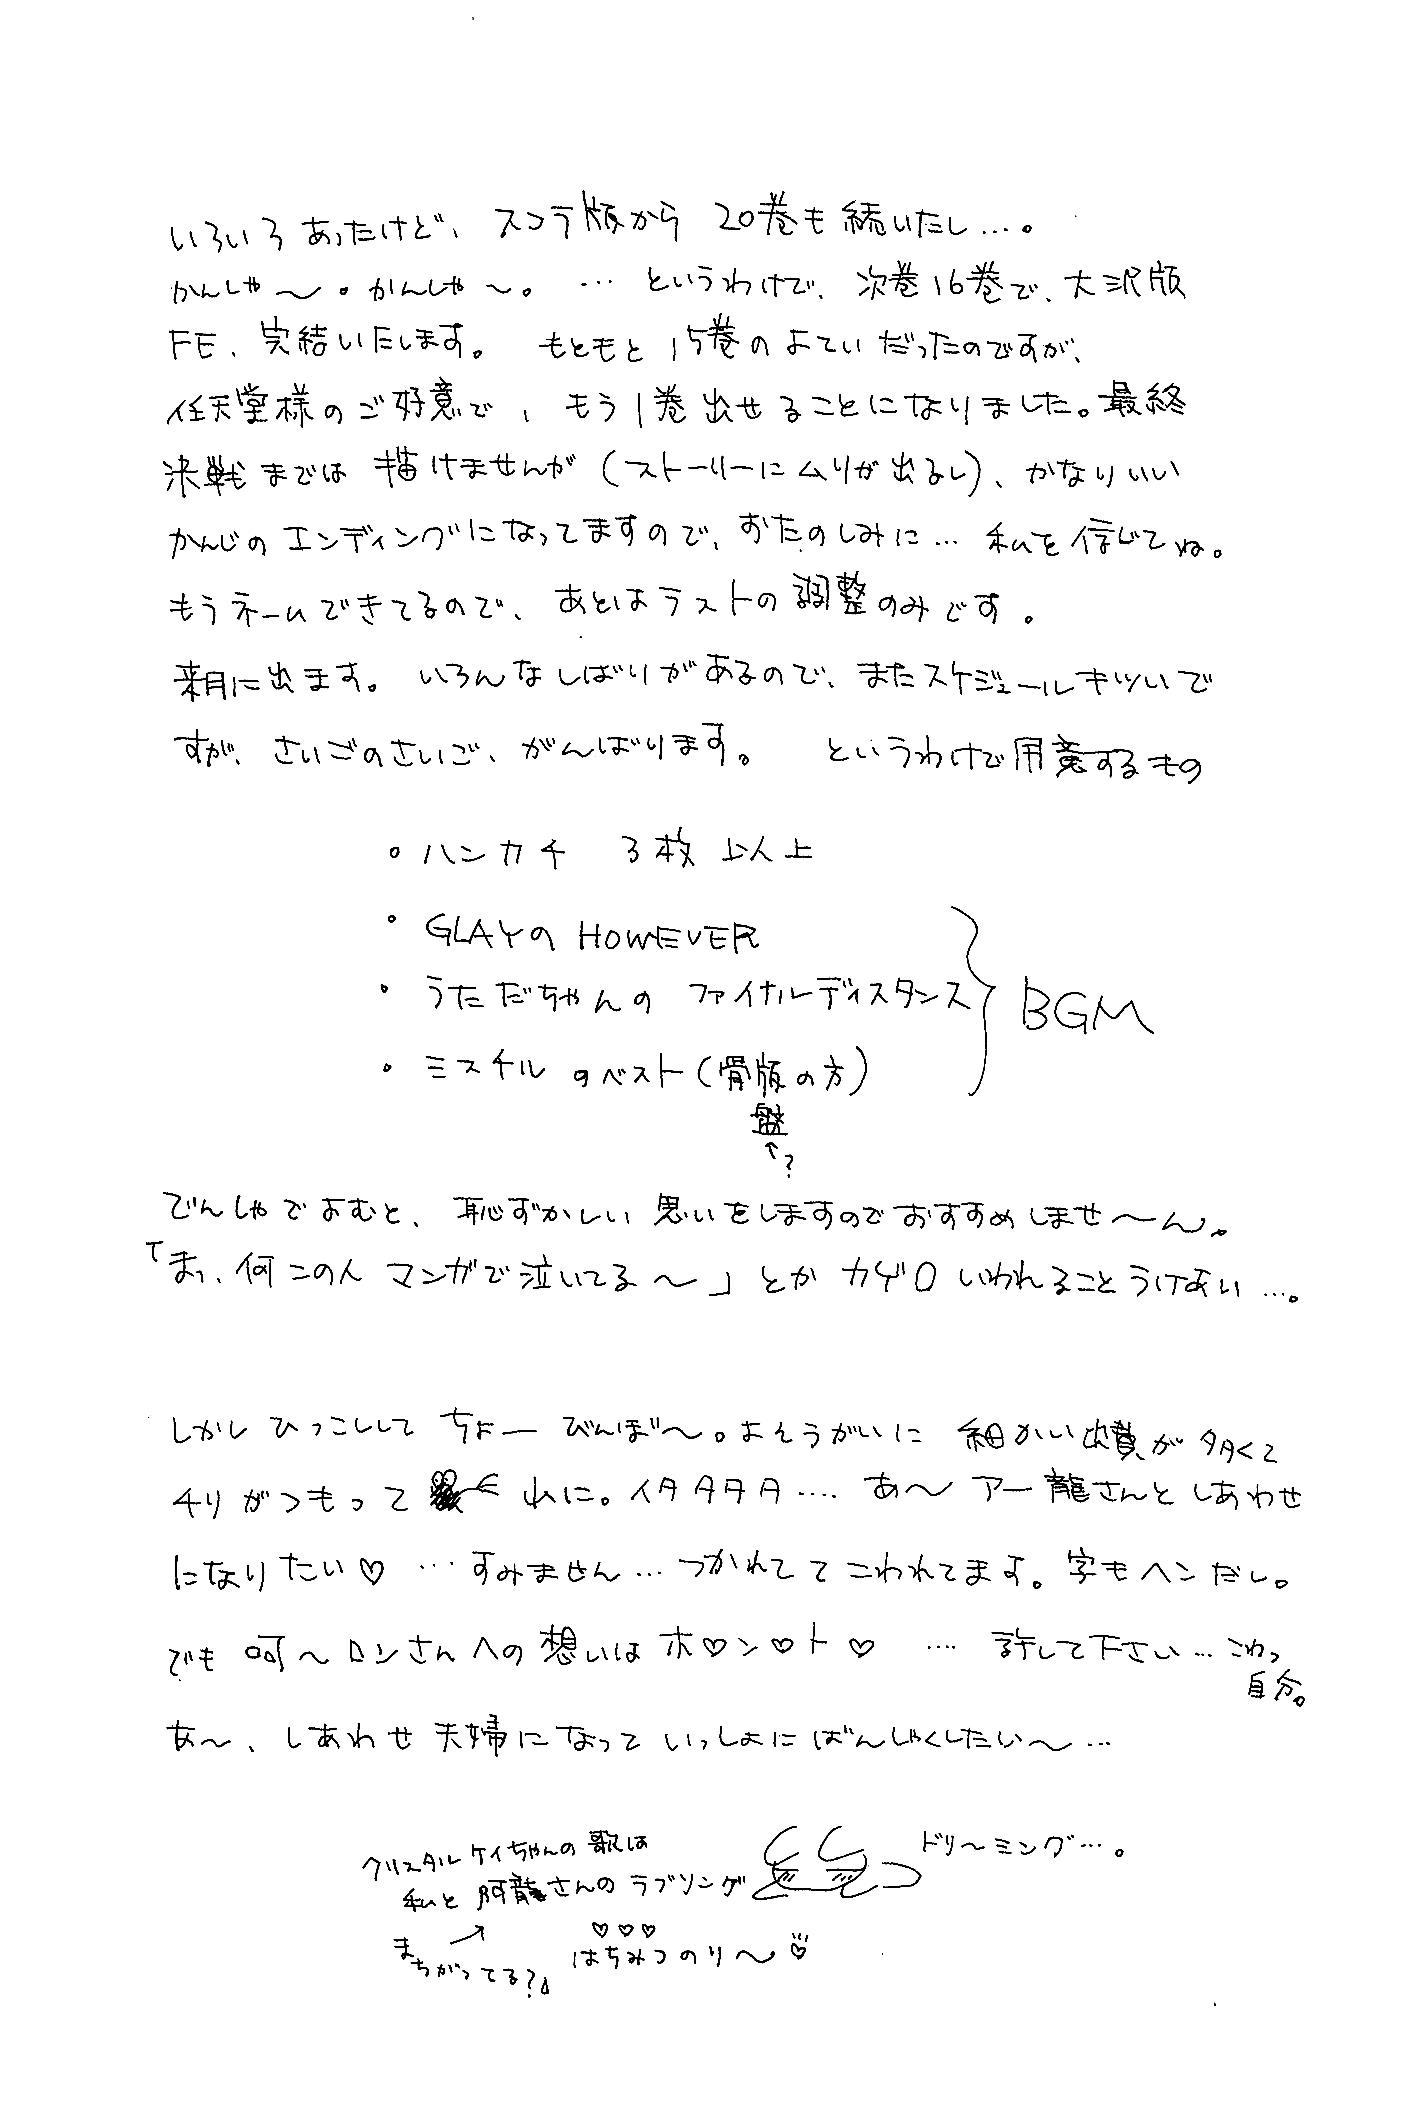 いろいろあったけど、スコラ版から20巻も続いたし…。
かんしゃ〜。かんしゃ〜。…というわけで、次巻16巻で、大沢版
FE、完結いたします。もともと15巻のよていだったのですが、
任天堂様のご好意で、もう1巻出せることになりました。最終
決戦までは描けませんが(ストーリーにムリが出るし)、かなりいい
かんじのエンディングになってますので、おたのしみに…私を信じてね。
もうネームできてるので、あとはラストの調整のみです。
来月に出ます。いろんなしばりがあるので、またスケジュールキツいで
すが、さいごのさいご、がんばります。というわけで用意するもの
・ハンカチ 3枚以上
・GLAYのHOWEVER
・うただちゃんのファイナルディスタンス
・ミスチルのベスト(骨版の方)
BGM
盤
↑?
でんしゃでよむと、恥ずかしい思いをしますのでおすすめしませ〜ん。
「まっ、何この人マンガで泣いてる〜」とかカゲ口いわれることうけあい…。
しかしひっこしして ちょーびんぼ〜。よそうがいに細かい出費が多くて
チリがつもって れに。イタタタタ…。あ〜アー龍さんとしあわせ
になりたい♡…すみません…つかれててこわれてます。字もヘンだし。
でも呵〜ロンさんへの想いはホ♡ン♡ト♡ …許して下さい…こわっ
自分。
あ〜、しあわせ夫婦になっていっしょにばんじゃくしたい〜…
クリスタルケイちゃんの歌は
私と阿龍さんのラブソング
ドリ〜ミング…。
まちがってる?
♡♡♡
はちみつのり〜♡